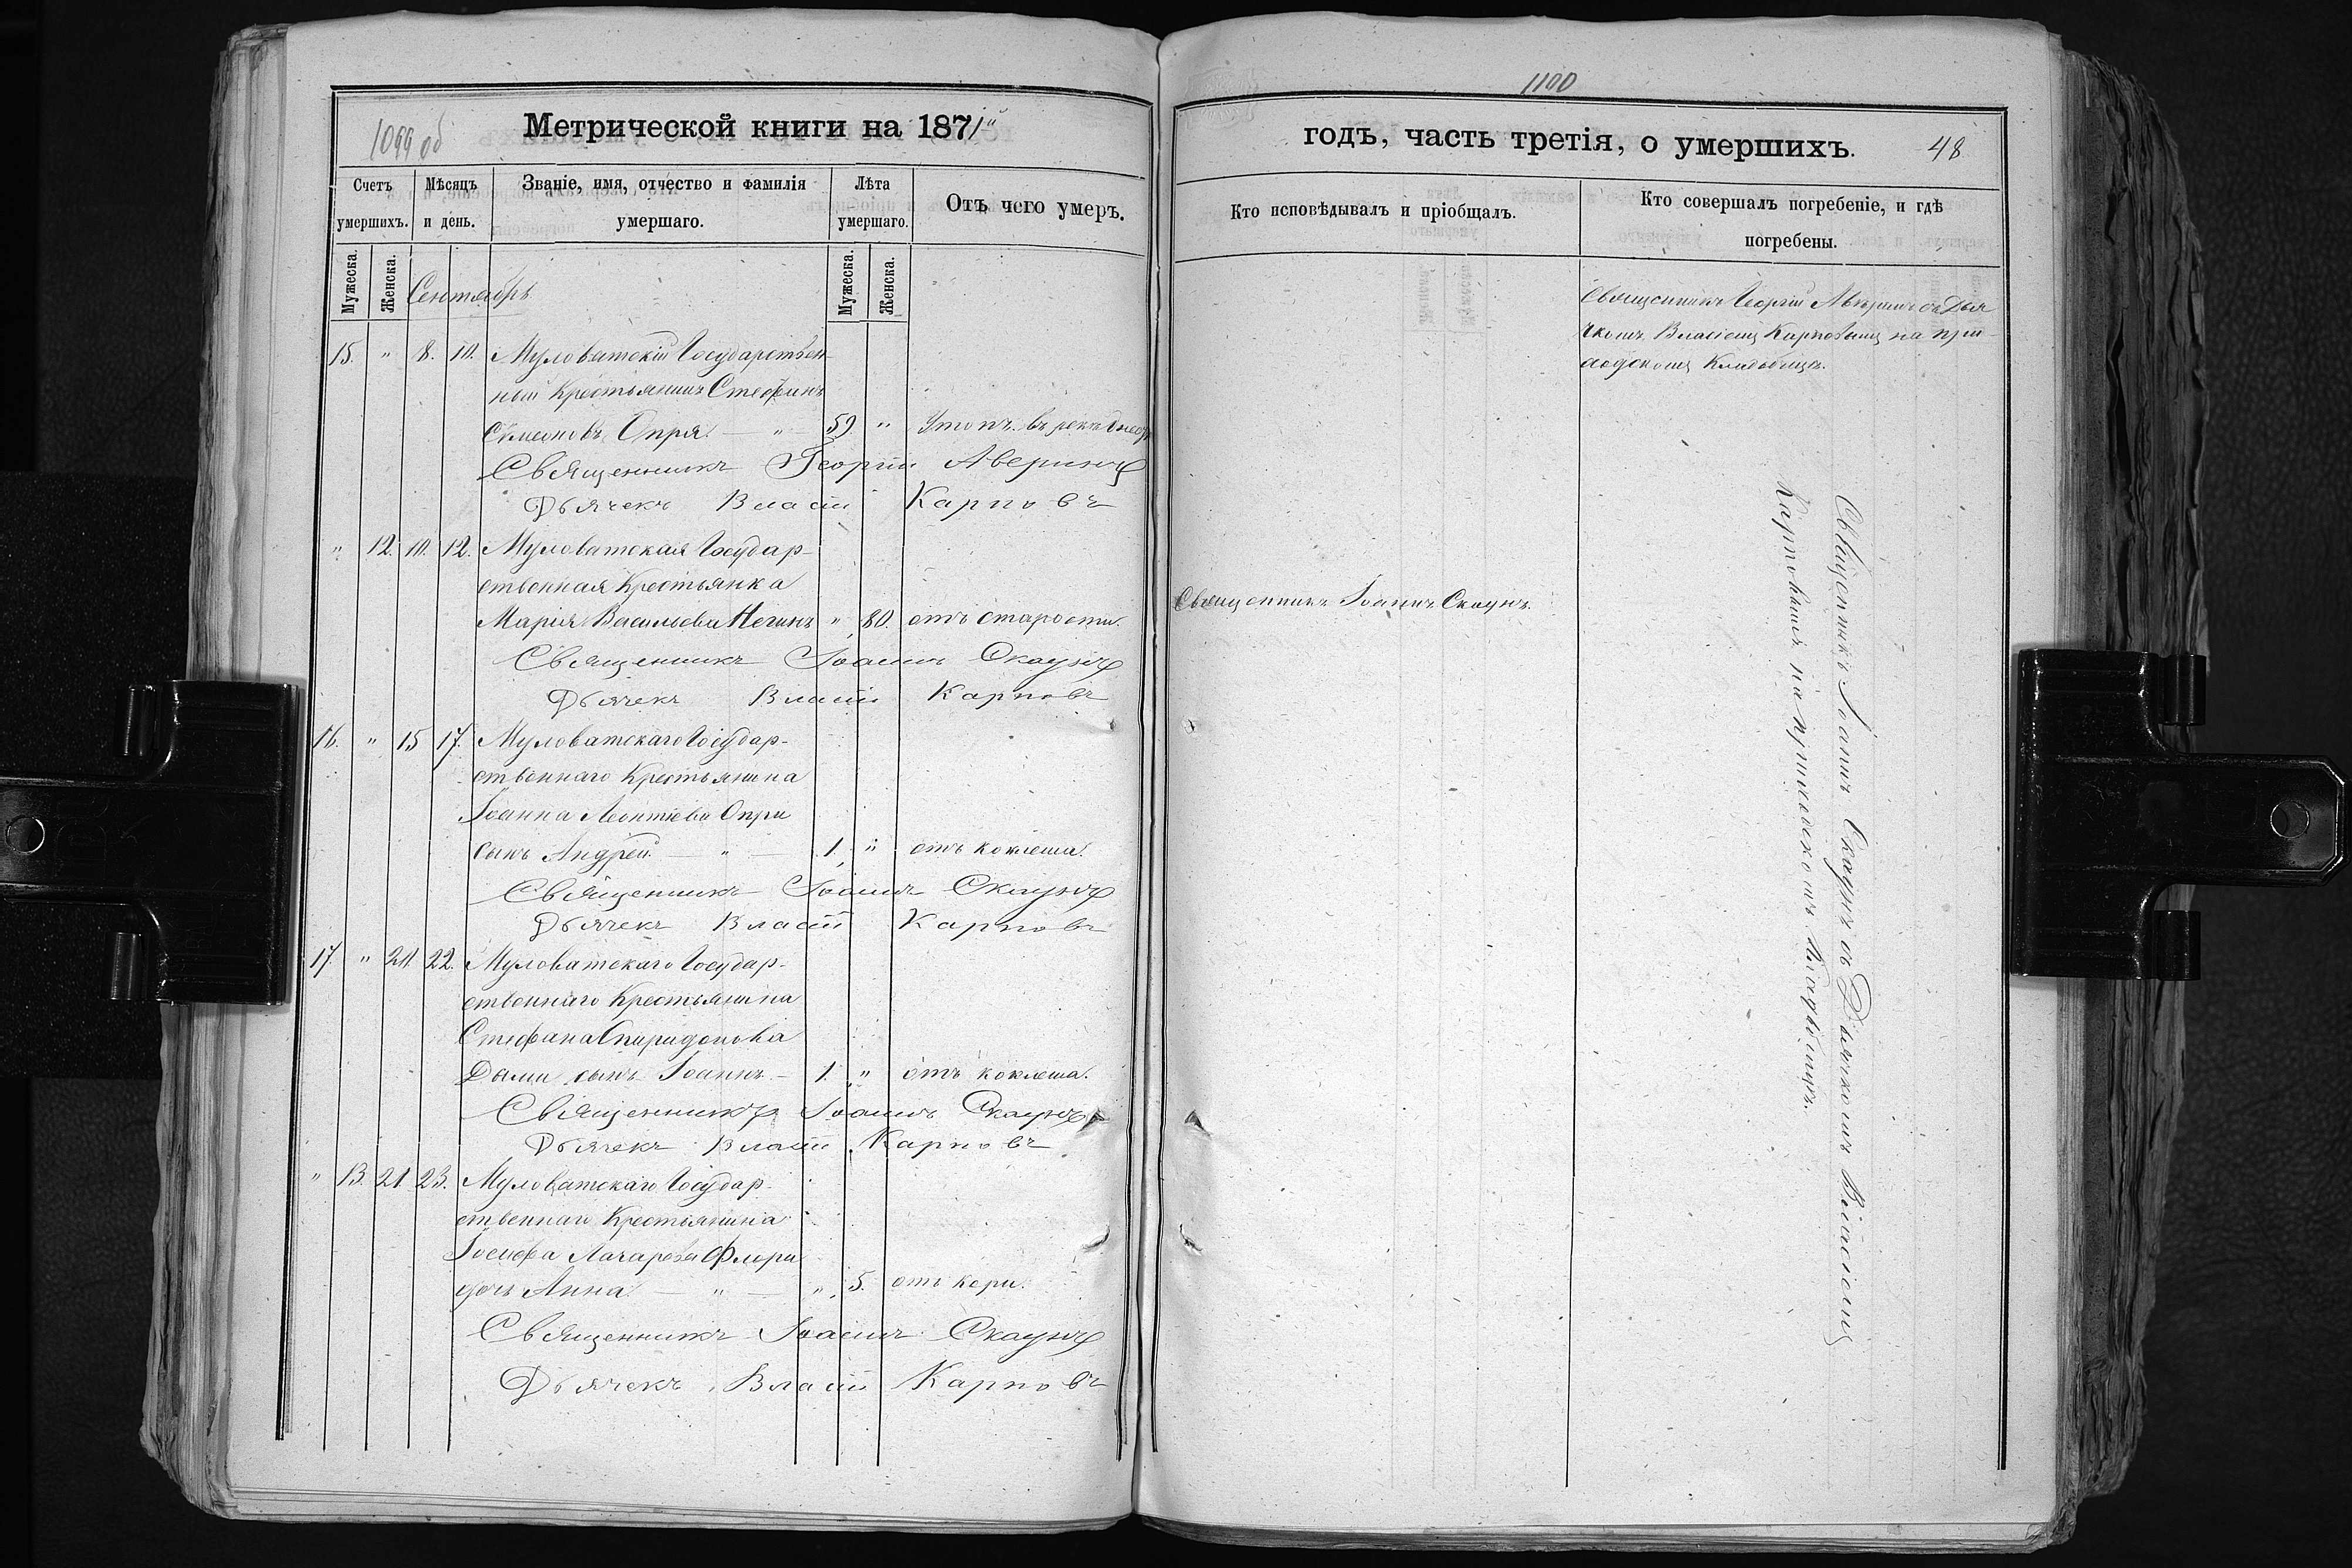 1099 об
Метрической книги на 1871й
Счетъ умершихъ.
Мѣсяцъ и день.
Званіе, имя, отчество и фамилія умершаго.
Лѣта умершаго.
Отъ чего умеръ.
Мужеска.
Женска.
Мужеска.
Женска.
Сентябрь
15. " 8. 10. Муловатскій Государствен
ный Крестьянинъ Стефанъ
Симеоновъ Опря — " — 59. " Утопъ въ рекѣ Днес
Священникъ Георгій Аверинъ
Дьячекъ Власій Карповъ
" 12. 10. 12. Муловатская Государ-
ственная Крестьянка
Марія Васильева " 80. отъ старости.
Священникъ Іоаннъ Скаунъ
Дьячекъ Власій Карповъ
16. " 15 17. Муловатскаго Государ-
ственнаго Крестьянина
Іоанна Леонтіева Опри
сынъ Андрей — " — 1. " отъ коклеша.
Священникъ Іоаннъ Скаунъ
Дьячекъ Власій Карповъ
17. " 21. 22. Муловатскаго Государ-
ственнаго Крестьянина
Стефана Спиридонова
сынъ Іоаннъ — 1. " отъ коклеша.
Священникъ Іоаннъ Скаунъ
Дьячекъ Власій Карповъ
" 13. 21. 23. Муловатскаго Государ-
ственнаго Крестьянина
Іосифа Лазарева Флори
дочь Анна — " — " 5. отъ кори.
Священникъ Іоаннъ Скаунъ
Дьячекъ Власій Карповъ
1100
годъ, часть третія, о умершихъ.
48
Кто исповѣдывалъ и пріобщалъ.
Кто совершалъ погребеніе, и гдѣ
погребены.
Священникъ Георгій Аверинъ съ Дья
чкомъ Власіемъ Карповымъ на при-
ходскомъ Кладбищѣ.
Священникъ Іоаннъ Скаунъ.
Священникъ Іоаннъ Скаунъ съ Дьячкомъ Власіемъ
Карповымъ на приходскомъ Кладбищѣ.